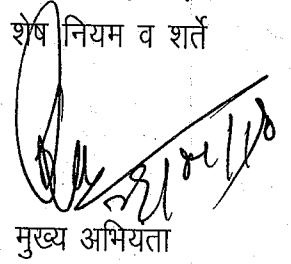 शेष नियम व शर्ते
मुख्य अभियता